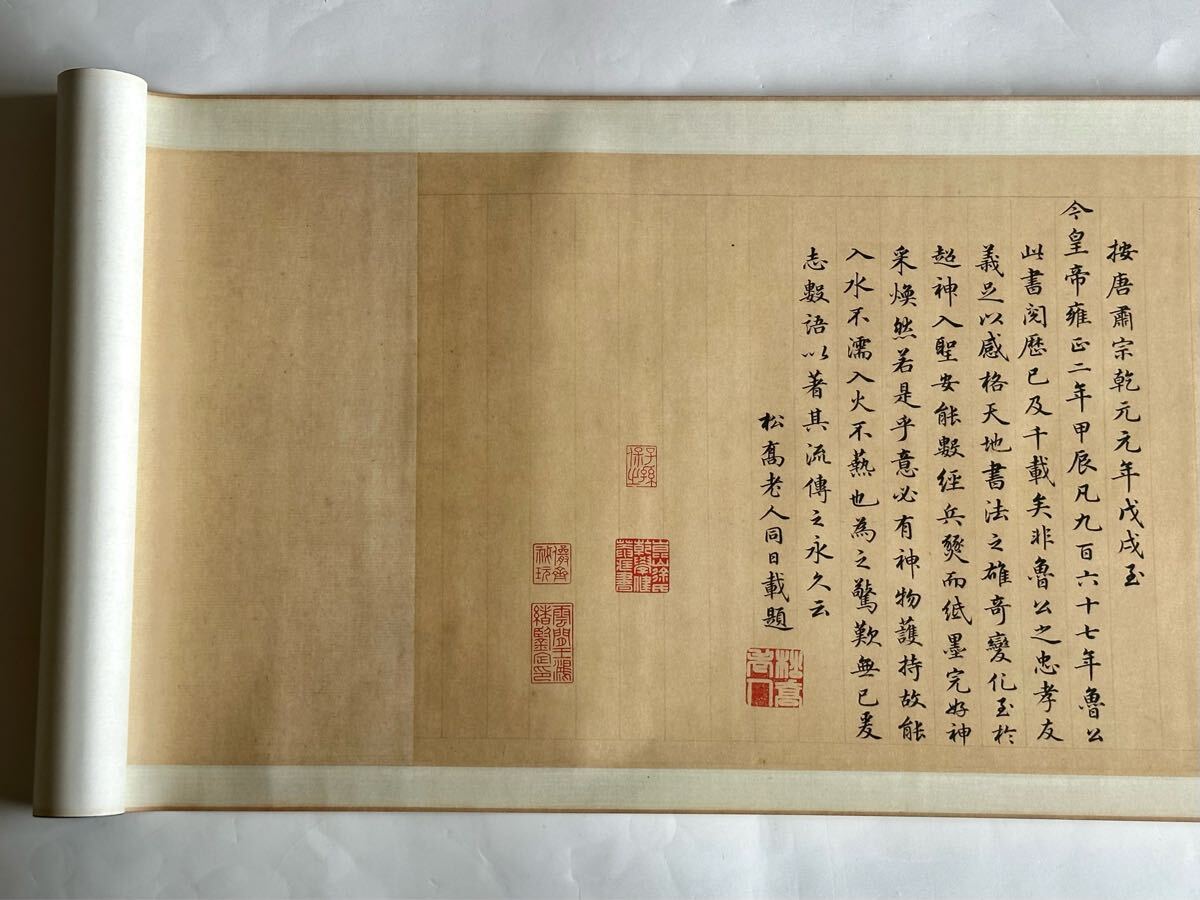 按唐肅宗乾元元年戊戌至
今皇帝雍正二年甲辰凡九百六十七年魯公
此書閱歷已及千載矣非魯公之忠孝友
義足以感格天地書法之雄奇變化至於
超神入聖安能數經兵燹而紙墨完好神
采煥然若是乎意必有神物護持故能
入水不濡入火不爇也為之驚歎無已爰
志數語以著其流傳之永久云
松喬老人同日載題
子孫
保之
崑山徐氏
乾學健
菴藏書
儼齋
秘玩
雲間王鴻
緒鑒定印